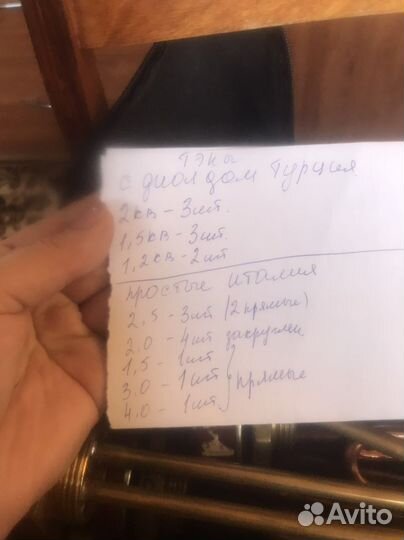 тэны
с диол дом Турция
2кв - 3шт.
1,5кв - 3шт.
1,2кв - 2шт
простые италия
2,5 - 3шт (2 прямые)
2.0 - 4шт закруглен
1,5 - 1шт
3.0 - 1шт прямые
4.0 - 1шт.
Avito